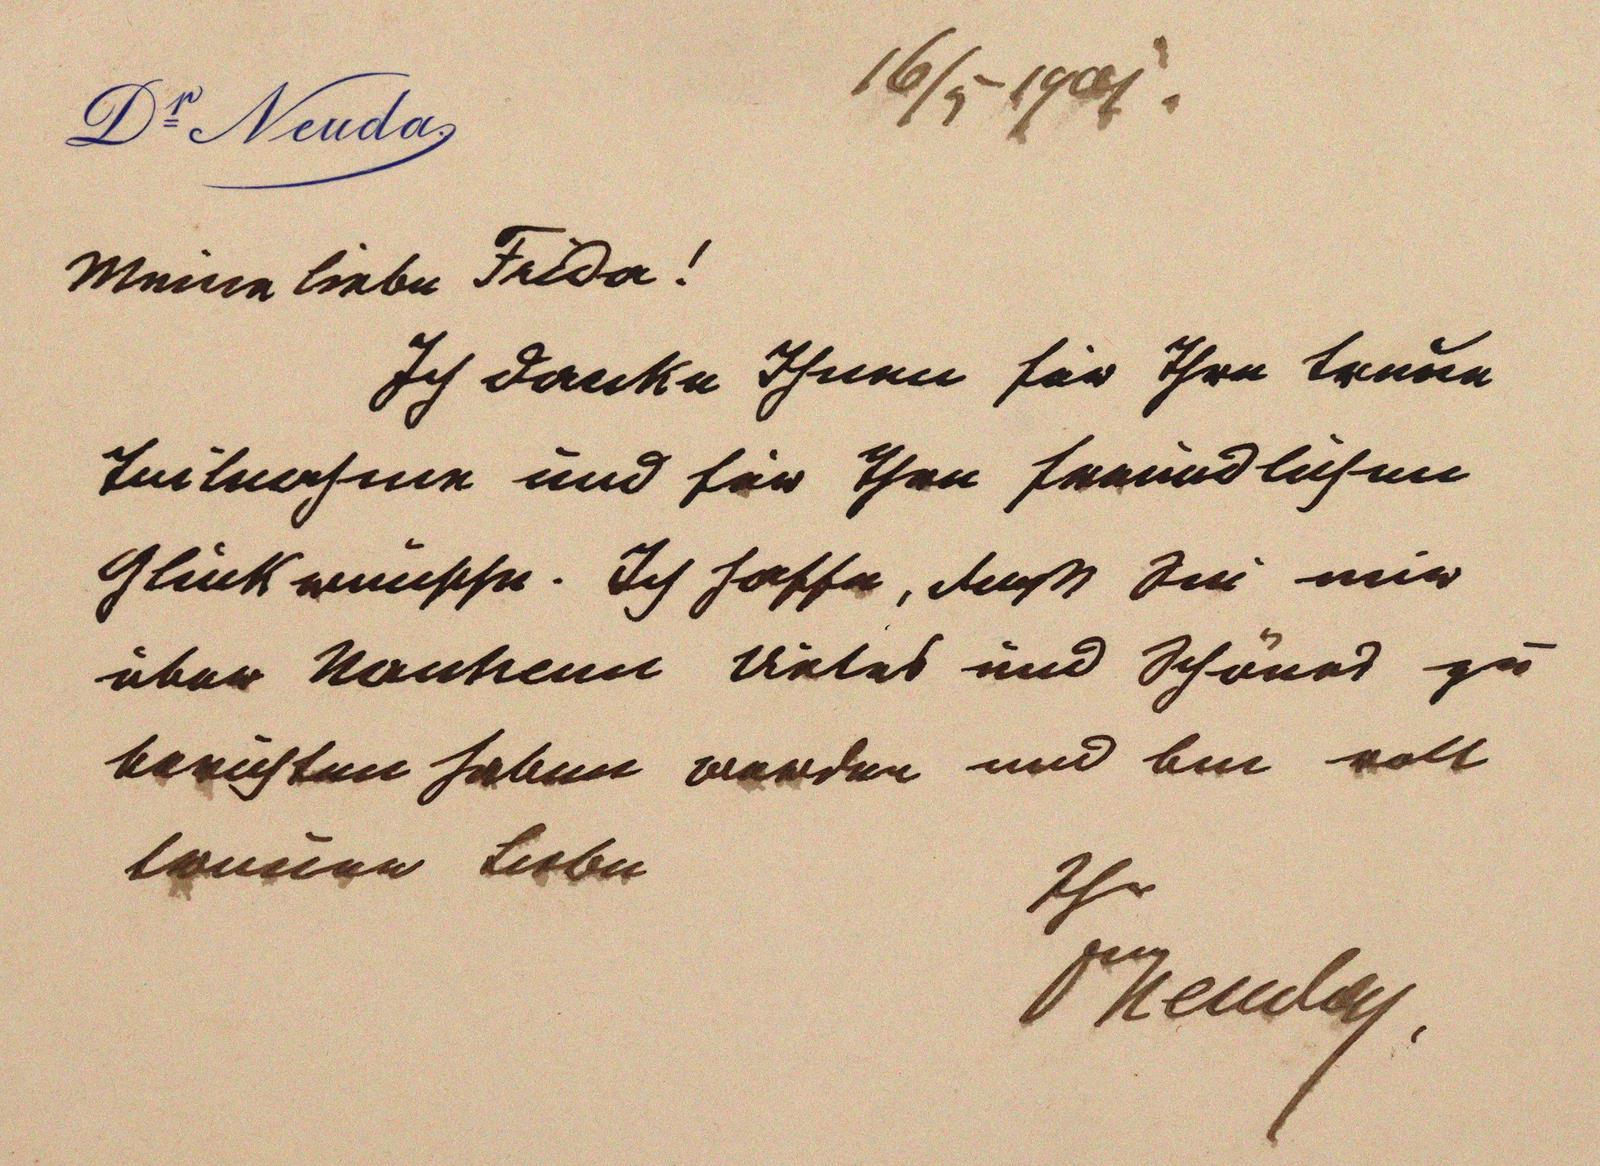 Dr Neuda
16/5 1901.
Meine liebe Frida!
Ich danke Ihnen für Ihre treue
Teilnahme und für Ihren freundlichen
Glückwunsch. Ich hoffe, dass Sie mir
über Vieles und Schönes zu
berichten haben werden und bin voll
treuer Liebe
Ihr
Neuda.